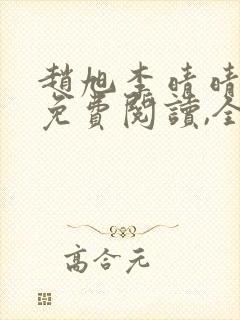 趙旭李晴晴
免費閱讀,全
高合元